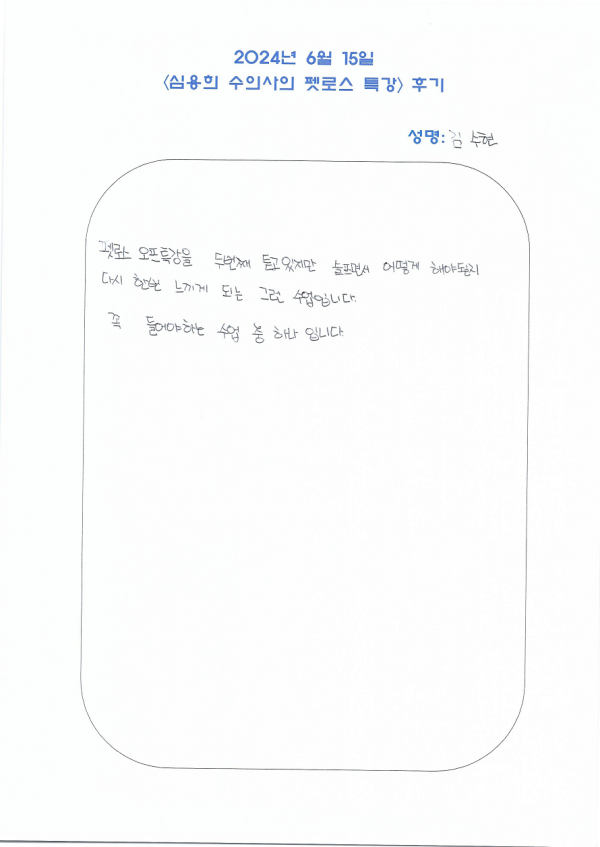 2024년 6월 15일
<심용희 수의사의 펫로스 특강> 후기
성명: 김 수현
펫로스 오프특강을 두번째 듣고 있지만 슬프면서 어떻게 해야될지
다시 한번 느끼게 되는 그런 수업입니다.
꼭 들어야하는 수업 중 하나 입니다.